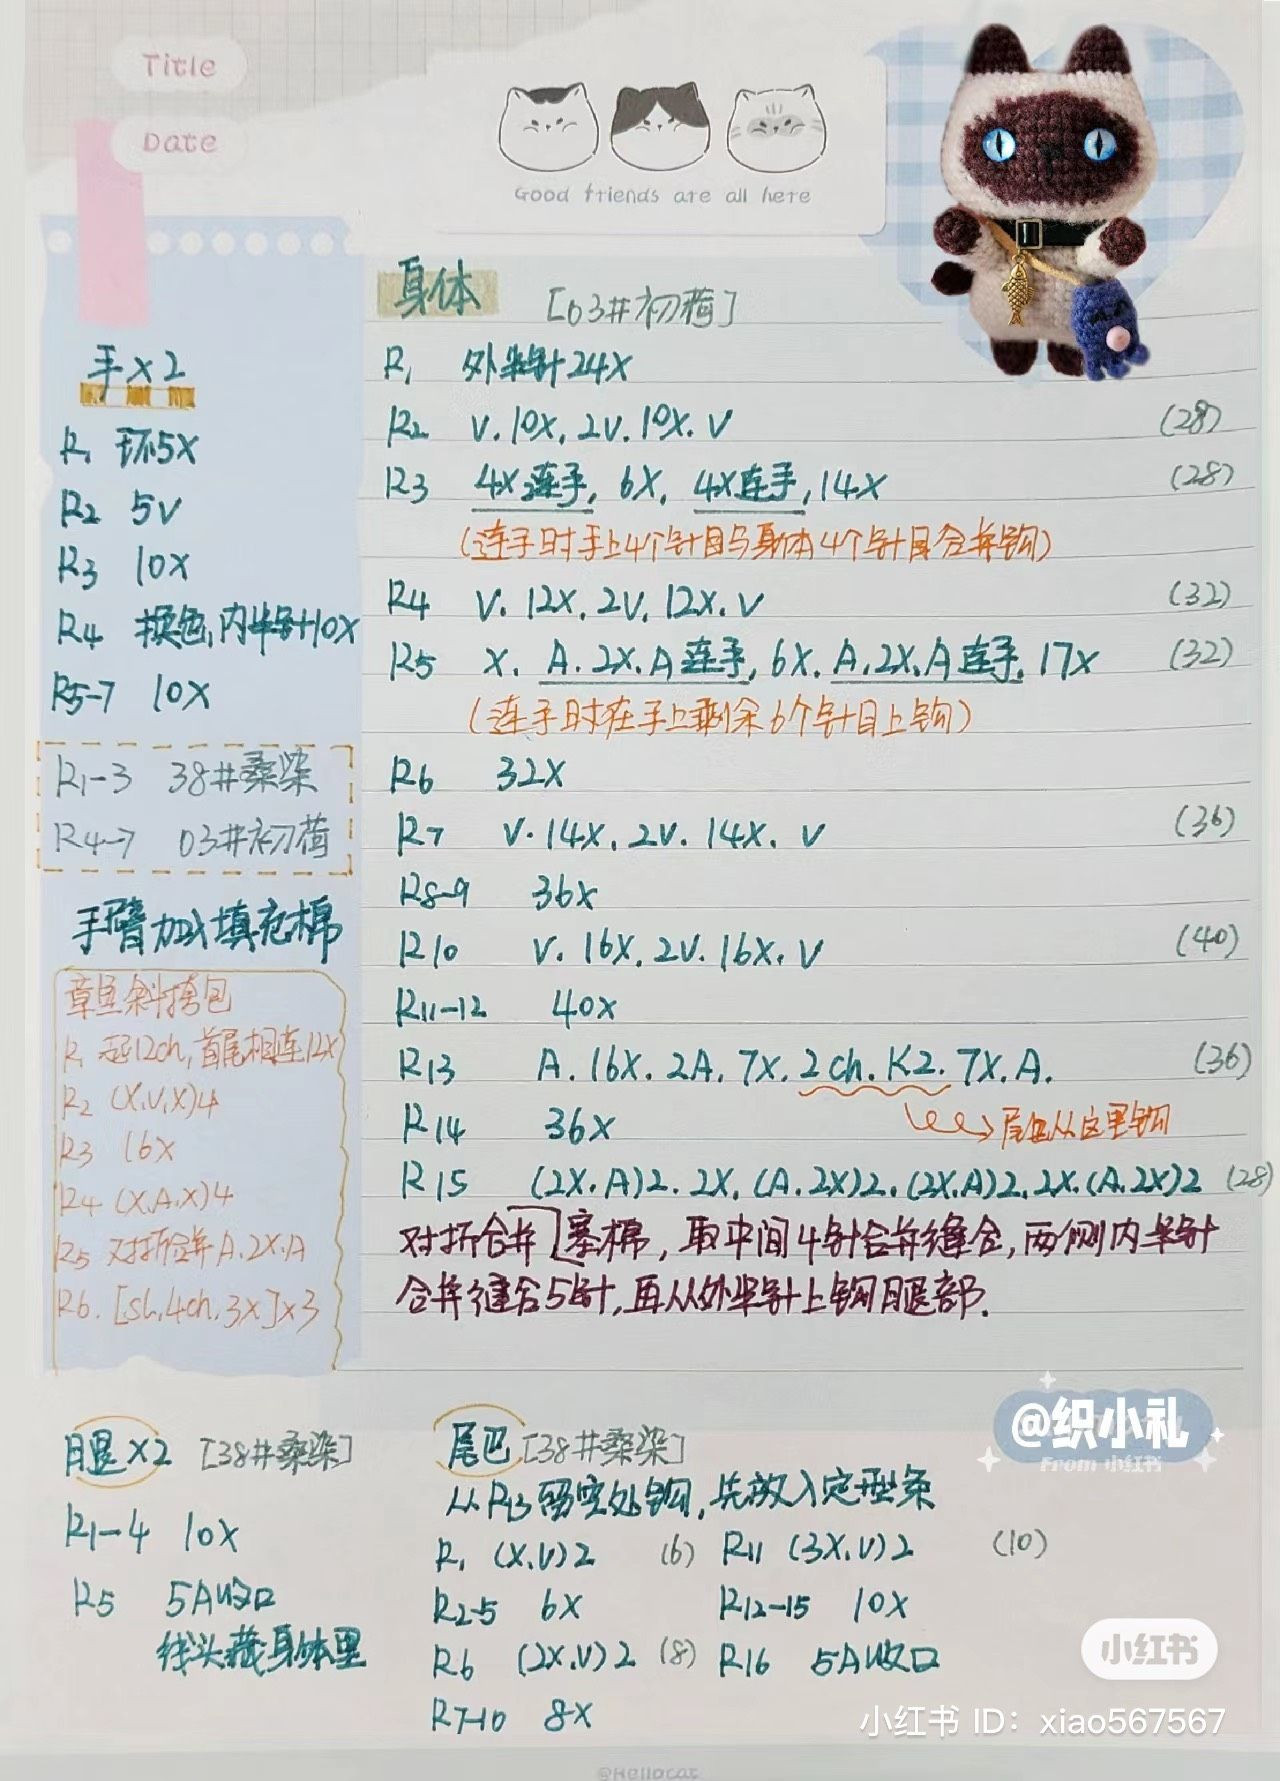 Title
Date
Good friends are all here
手X2
R1 环5X
R2 5V
R3 10X
R4 换色,内半针10X
R5-7 10X
R1-3 38#桑染
R4-7 03#初荷
手臂加入填充棉
章鱼斜挎包
R1 起12ch,首尾相连12X
R2 (X,V,X)4
R3 16X
R4 (X,A,X)4
R5 对折合并A.2X.A
R6. [sl,4ch,3X]X3
身体 [03#初荷]
R1 外半针24X
R2 V.10X,2V.10X.V (28)
R3 4X连手,6X,4X连手,14X (28)
(连手时手上4个针目与身体4个针目合并钩)
R4 V.12X,2V,12X.V (32)
R5 X.A.2X.A连手,6X.A.2X.A连手.17X (32)
(连手时在手上剩余6个针目上钩)
R6 32X
R7 V.14X,2V.14X.V (36)
R8-9 36X
R10 V.16X,2V.16X.V (40)
R11-12 40X
R13 A.16X.2A.7X.2ch.K2.7X.A. (36)
尾巴从这里钩
R14 36X
R15 (2X.A)2.2X,(A.2X)2,(2X.A)2,2X.(A.2X)2 (28)
对折合并]塞棉,取中间4针合并缝合,两侧内半针
合并缝合5针,再从外半针上钩腿部.
腿X2 [38#桑染]
R1-4 10X
R5 5A收口
线头藏身体里
尾巴[38#桑染]
从R13留空处钩,先放入定型条
R1 (X,V)2 (6) R11 (3X,V)2 (10)
R2-5 6X R12-15 10X
R6 (2X,V)2 (8) R16 5A收口
R7-10 8X
@织小礼
From 小红书
小红书
小红书 ID: xiao567567
@Hellocat